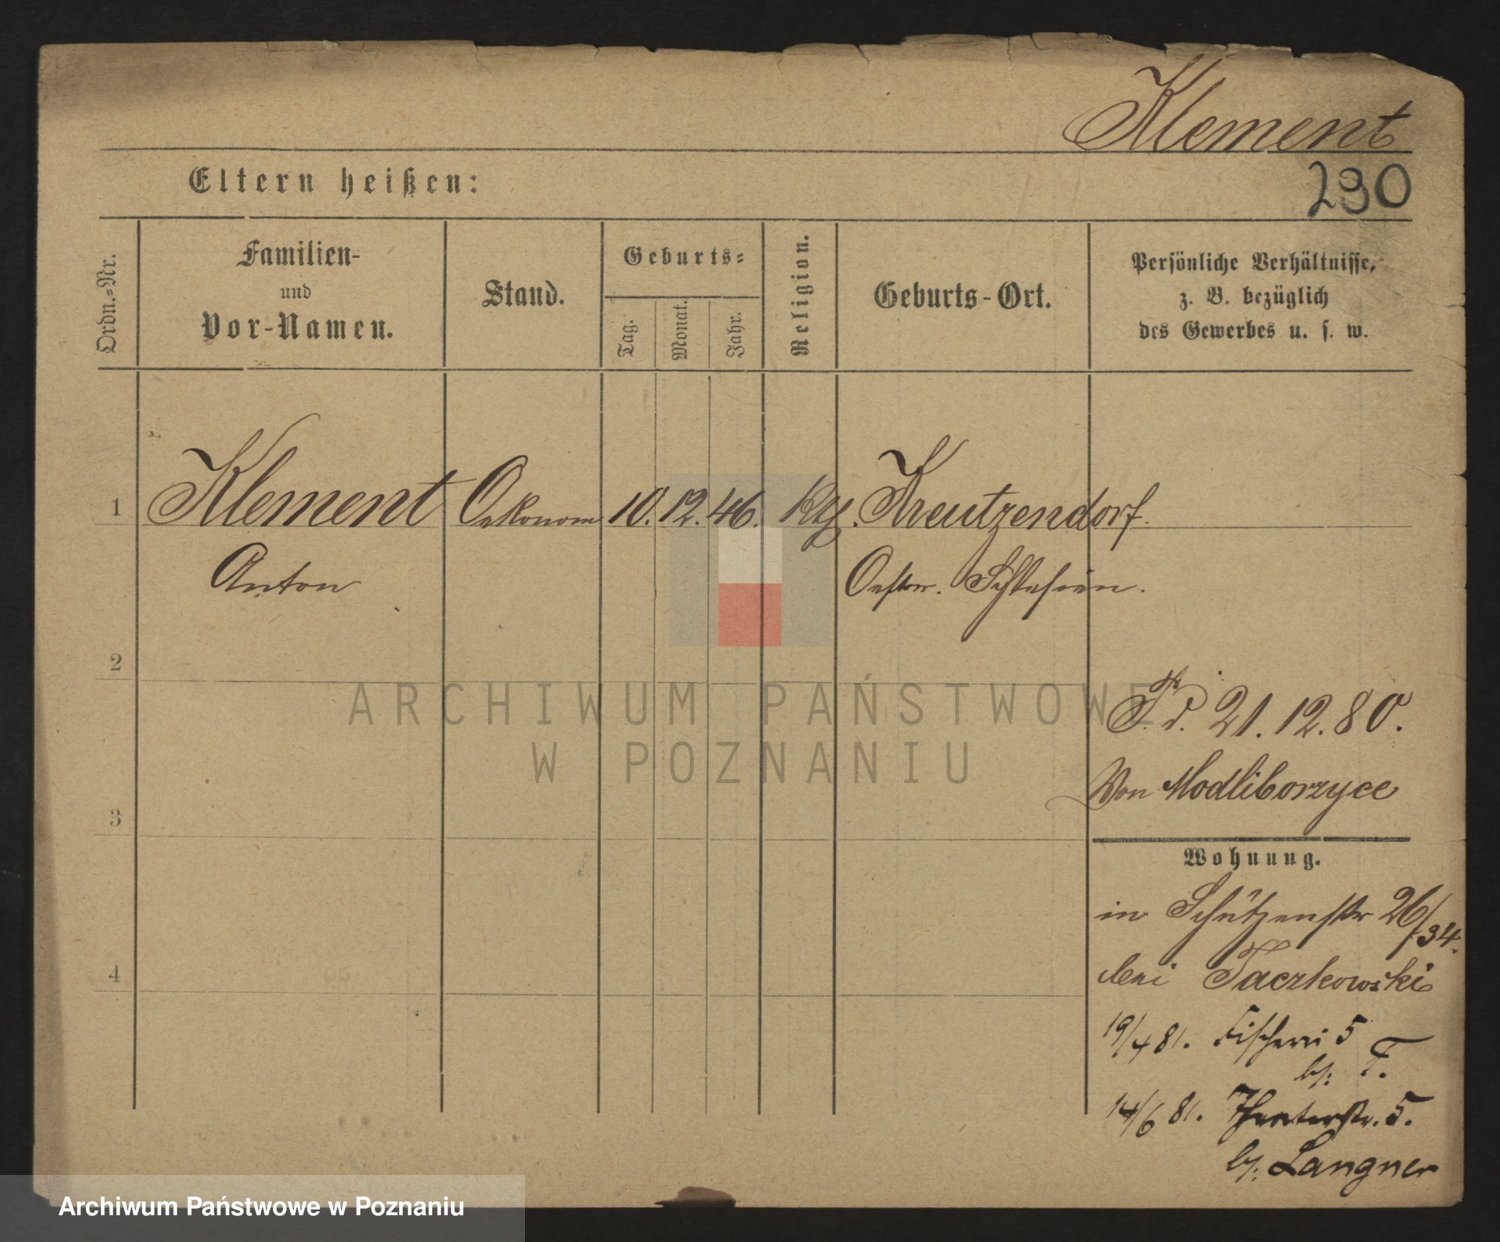 Klement
290
Eltern heißen:
Ordn.-Nr.
Familien-
und
Vor-Namen.
Stand.
Geburts-
Tag.
Monat.
Jahr.
Religion.
Geburts-Ort.
Persönliche Verhältnisse,
z. B. bezüglich
des Gewerbes u. s. w.
1 Klement Oekonom 10. 12. 46. Kreutzendorf
Anton Oestr. Schlesien.
2
ARCHIWUM PAŃSTWOWE
W POZNANIU
21. 12. 80.
Von Modliborzyce
3
Wohnung.
in Schützenstr 26/34.
bei Taczkowski
4
19/4 81. Fischerei 5
b/: T.
14/6 81. Theaterstr. 5.
b/: Langner
Archiwum Państwowe w Poznaniu